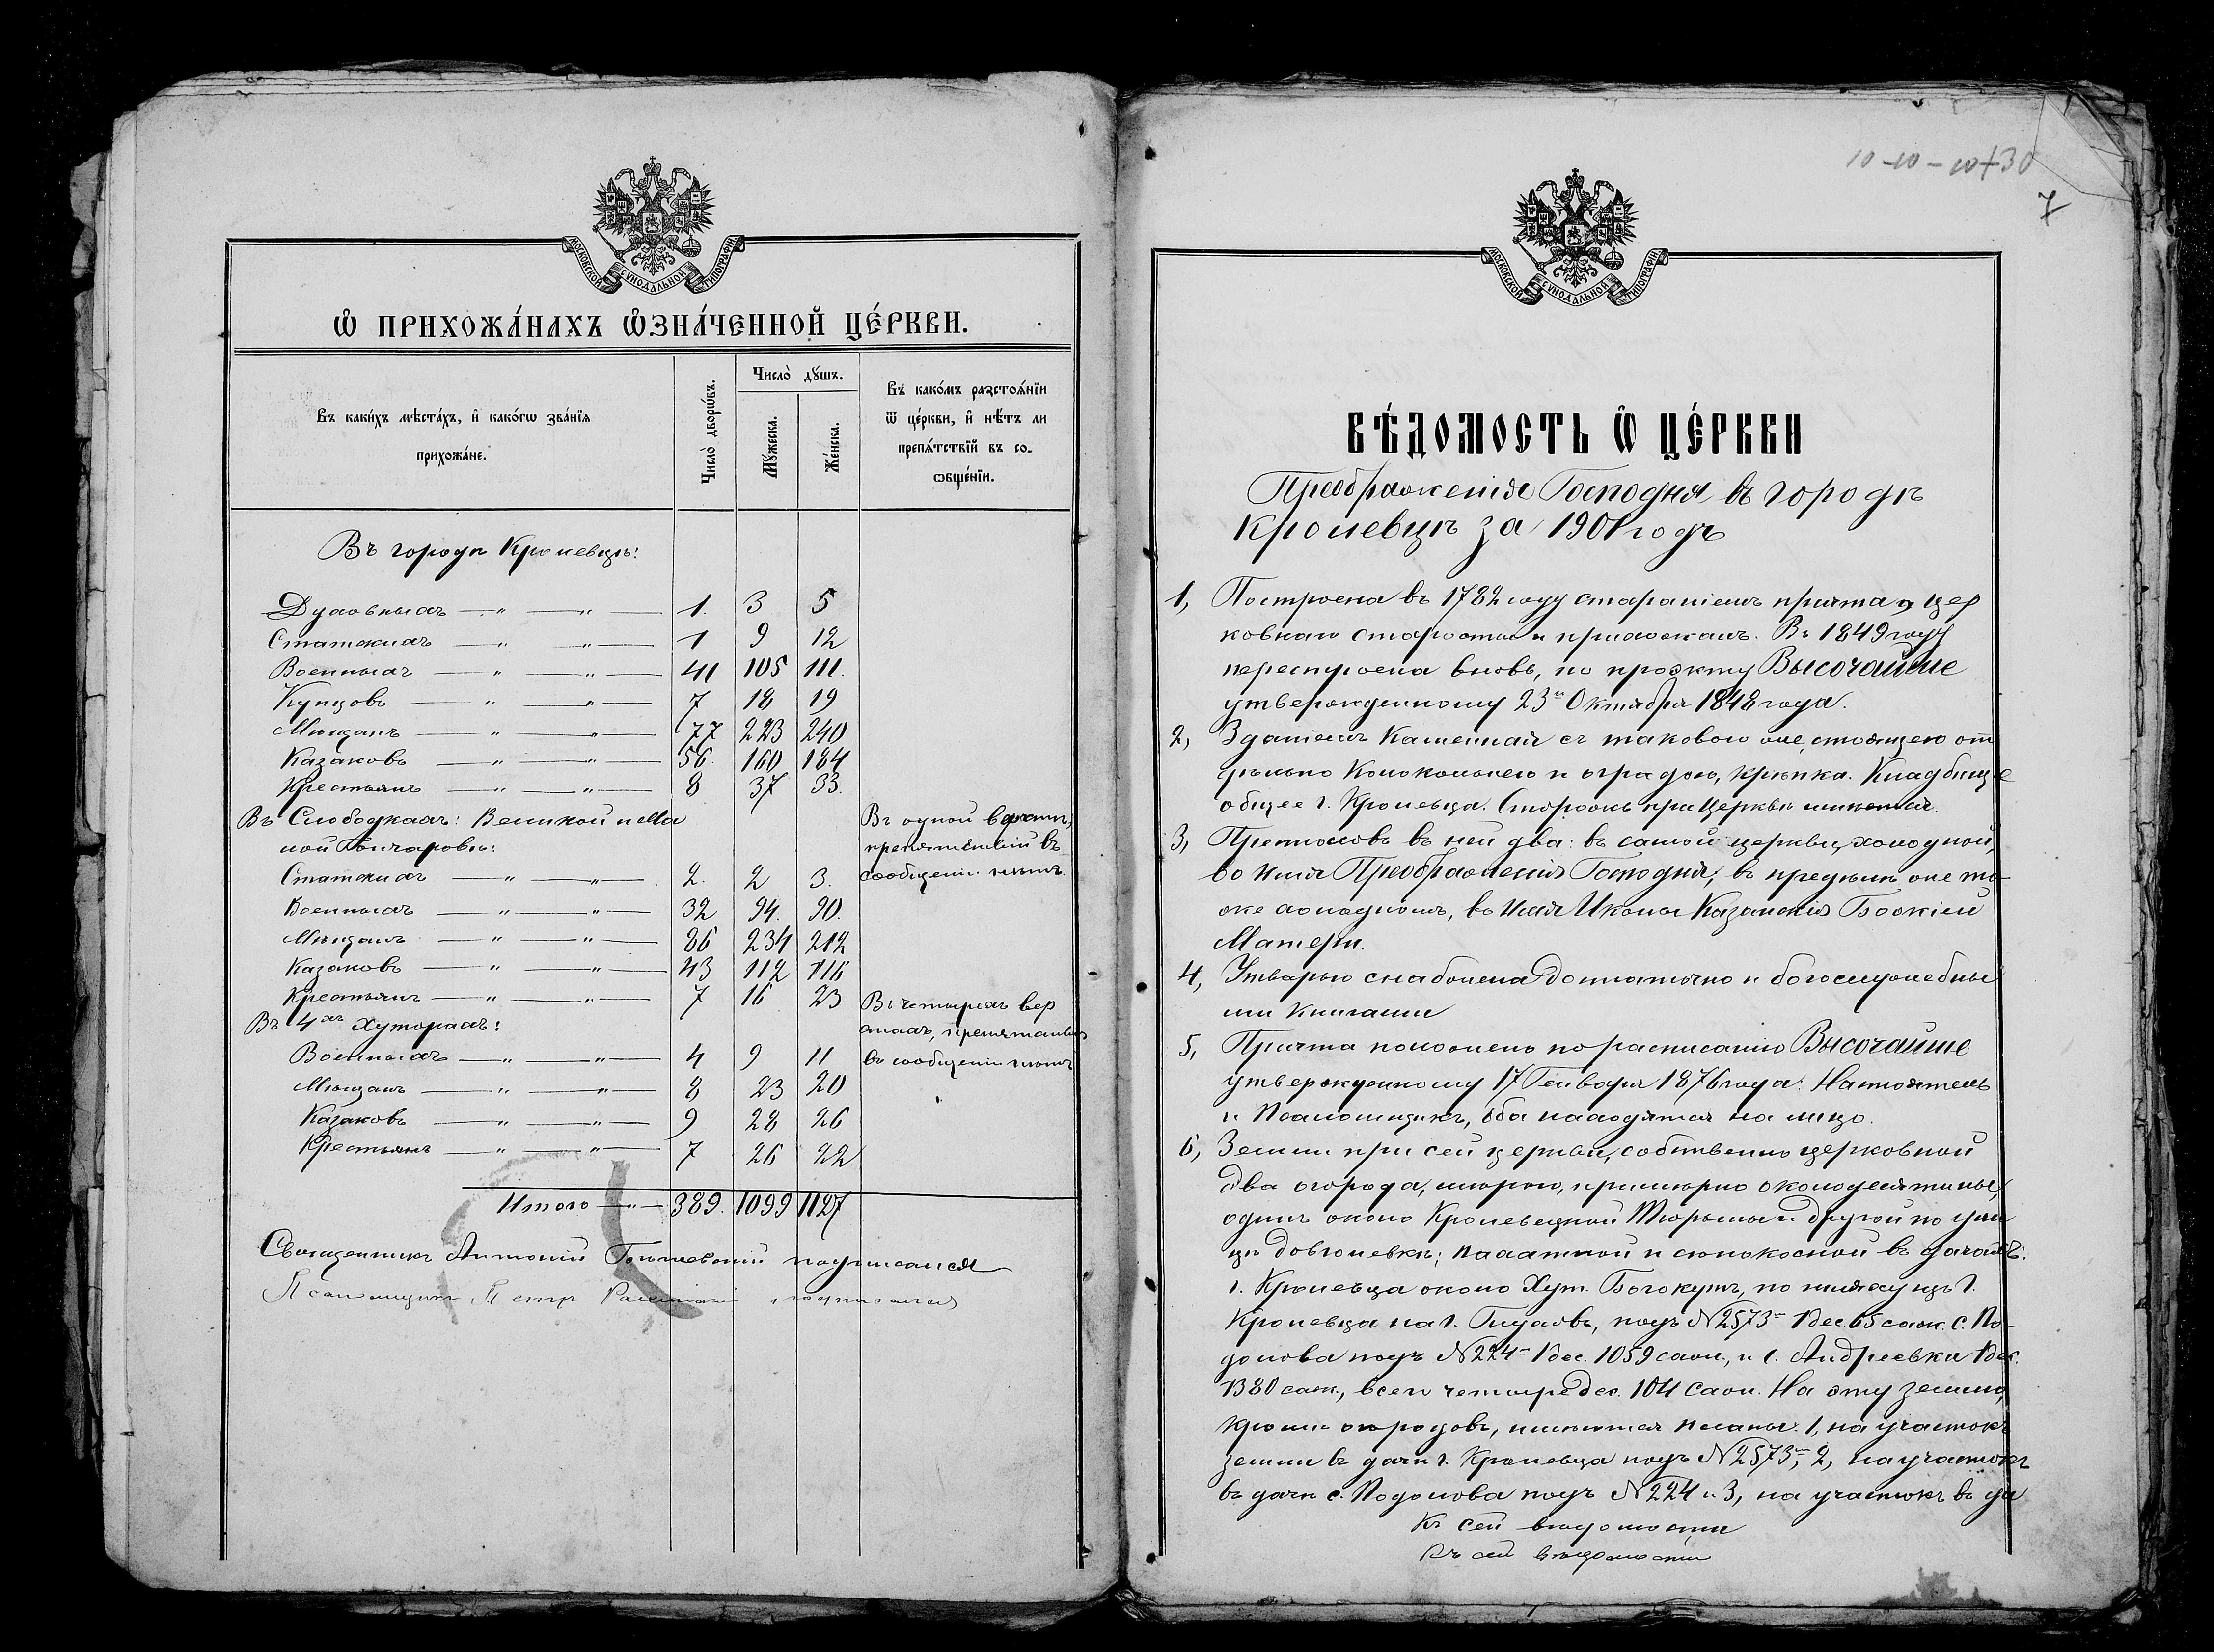 МОСКОВСКОЙ СѴНОДАЛЬНОЙ ТИПОГРАФІИ
Ѡ ПРИХОЖА́НАХЪ ѠЗНА́ЧЕННОЙ ЦЕ́РКВИ.
Въ каки́хъ мѣста́хъ, и҆ како́гѡ зва́нїѧ
прихожа́не.
Число̀ дворѡ́въ.
Число̀ дꙋшъ.
Мꙋ́жеска.
Же́нска.
Въ како́мъ разстоѧ́нїи
ѿ це́ркви, и҆ нѣ́тъ ли
препѧ́тствїй въ со-
ѡбще́нїи.
Въ городѣ Кролевцѣ:
Духовныхъ — „ — „ — 1. 3 5
Статскихъ — „ — „ — 1 9 12
Военныхъ — „ — „ — 41 105 111.
Купцовъ — „ — „ — 7 18 19
Мѣщанъ — „ — „ — 77 223 240
Казаковъ — „ — „ — 56. 160 184
Крестьянъ — „ — „ — 8 37 33.
Въ Слободкахъ: Великой и Ма
лой Гончаровкѣ:
Въ одной верстѣ,
препятствий въ
сообщеніи нѣтъ.
Статскихъ — „ — „ — 2. 2 3.
Военныхъ — „ — „ — 32 94. 90.
Мѣщанъ — „ — „ — 86 234 212
Казаковъ — „ — „ — 43 112 116
Крестьянъ — „ — „ — 7 16 23
Въ 4хъ Хуторахъ:
Въ четырехъ вер
стахъ, препятствій
въ сообщеніи нѣтъ
Военныхъ — „ — „ — 4 9 11
Мѣщанъ — „ — „ — 8 23 20
Казаковъ — „ — „ — 9 28 26
Крестьянъ — „ — „ — 7 26 22
Итого — „ — 389. 1099 1127
Священникъ Антоній подписался
Псаломщикъ Петръ подписался
10-10-10+30
7
МОСКОВСКОЙ СѴНОДАЛЬНОЙ ТИПОГРАФІИ
ВѢ́ДОМОСТЬ Ѡ҆ ЦЕ́РКВИ
Преображенія Господня въ городѣ
Кролевцѣ за 1901 годъ
1, Построена въ 1782 году стараніемъ причта, цер
ковнаго старосты и прихожанъ. Въ 1849 году
перестроена вновь, по проэкту Высочайше
утвержденному 23го Октября 1848 года.
2, Зданіемъ Каменная съ таковою же, стоящею от
дѣльно Колокольнею и оградою, крѣпка. Кладбище
общее г. Кролевца. Сторожъ при Церкви имѣется.
3, Престоловъ въ ней два: въ самой церкви, холодной,
во имя Преображенія Господня; въ предѣлѣ же то-
же холодномъ, во имя Иконы Казанскія Божіей
Матери.
4, Утварью снабжена достаточно и богослужебны
ми книгами
5, Причта положено по расписанію Высочайше
утвержденному 17 Генваря 1876 года: Настоятель
и Псаломщикъ, оба находятся на лицо.
6, Земли при сей церкви, собственно церковной
два огорода, мѣрою, примѣрно около десятины,
одинъ около Кролевецкой Тюрьмы и другой по ули
цѣ Довголевкѣ; пахатной и сѣнокосной въ дачахъ:
г. Кролевца около Хут. Богокутъ, по шляху изъ г.
Кролевца на г. Глуховъ, подъ №2573м 1 дес. 65 саж. С. По-
долова подъ №224м 1 дес. 1059 саж., и с. Андреевки 1 дес.
1380 саж., всего четыре дес. 104 саж. На эту землю,
кромѣ огородовъ, имѣются планы: 1, на участокъ
земли въ дачи г. Кролевца подъ №2573м; 2, на участокъ
въ дачи с. Подолова подъ №224 и 3, на участокъ въ да
Къ сей вѣдомости
Къ сей вѣдомости